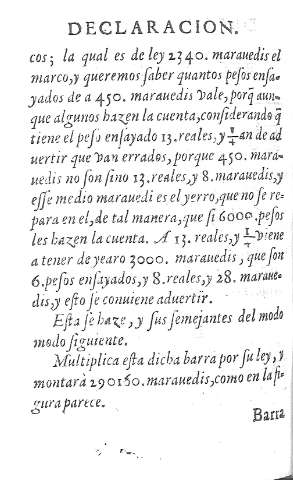 DECLARACION.
cos; la qual es de ley 2340. marauedis el
marco, y queremos saber quantos pesos ensa-
yados de a 450. marauedis vale, porq̃ aun-
que algunos hazen la cuenta, considerando q̃
tiene el peso ensayado 13. reales, y 1/4 an de ad
uertir que van errados, porque 450. mara-
uedis no son sino 13. reales, y 8. marauedis, y
esse medio marauedi es el yerro, que no se re-
para en el, de tal manera, que si 6000. pesos
les hazen la cuenta. A 13. reales, y 1/4 viene
a tener de yearo 3000. marauedis, que son
6. pesos ensayados, y 8. reales, y 28. maraue-
dis, y esto se conuiene aduertir.
Esta se haze, y sus semejantes del modo
modo siguiente.
Multiplica esta dicha barra por su ley, y
montarà 290160. marauedis, como en la fi-
gura parece.
Barra